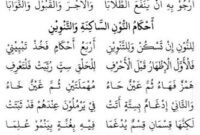 أَرْجُو بِهِ أَنْ يَنْفَعَ الطُّلَّابَا وَالْأَجْرَ وَالْقَبُولَ وَالثَّوَابَا
أَحْكَامُ النُّونِ السَّاكِنَةِ وَالتَّنْوِينِ
لِلنُّونِ إِنْ تَسْكُنْ وَلِلتَّنْوِينِ أَرْبَعُ أَحْكَامٍ فَخُذْ تَبْيِينِي
فَالْأَوَّلُ الْإِظْهَارُ قَبْلَ أَحْرُفِ لِلْحَلْقِ سِتٌّ رُتِّبَتْ فَلْتَعْرِفِ
هَمْزٌ فَهَاءٌ ثُمَّ عَيْنٌ حَاءُ مُهْمَلَتَانِ ثُمَّ غَيْنٌ خَاءُ
وَالثَّانِ إِدْغَامٌ بِسِتَّةٍ أَتَتْ فِي يَرْمُلُونَ عِنْدَهُمْ قَدْ ثَبَتَتْ
لَكِنَّهَا قِسْمَانِ قِسْمٌ يُدْغَمَا فِيهِ بِغُنَّةٍ بِيَنْمُو عُلِمَا